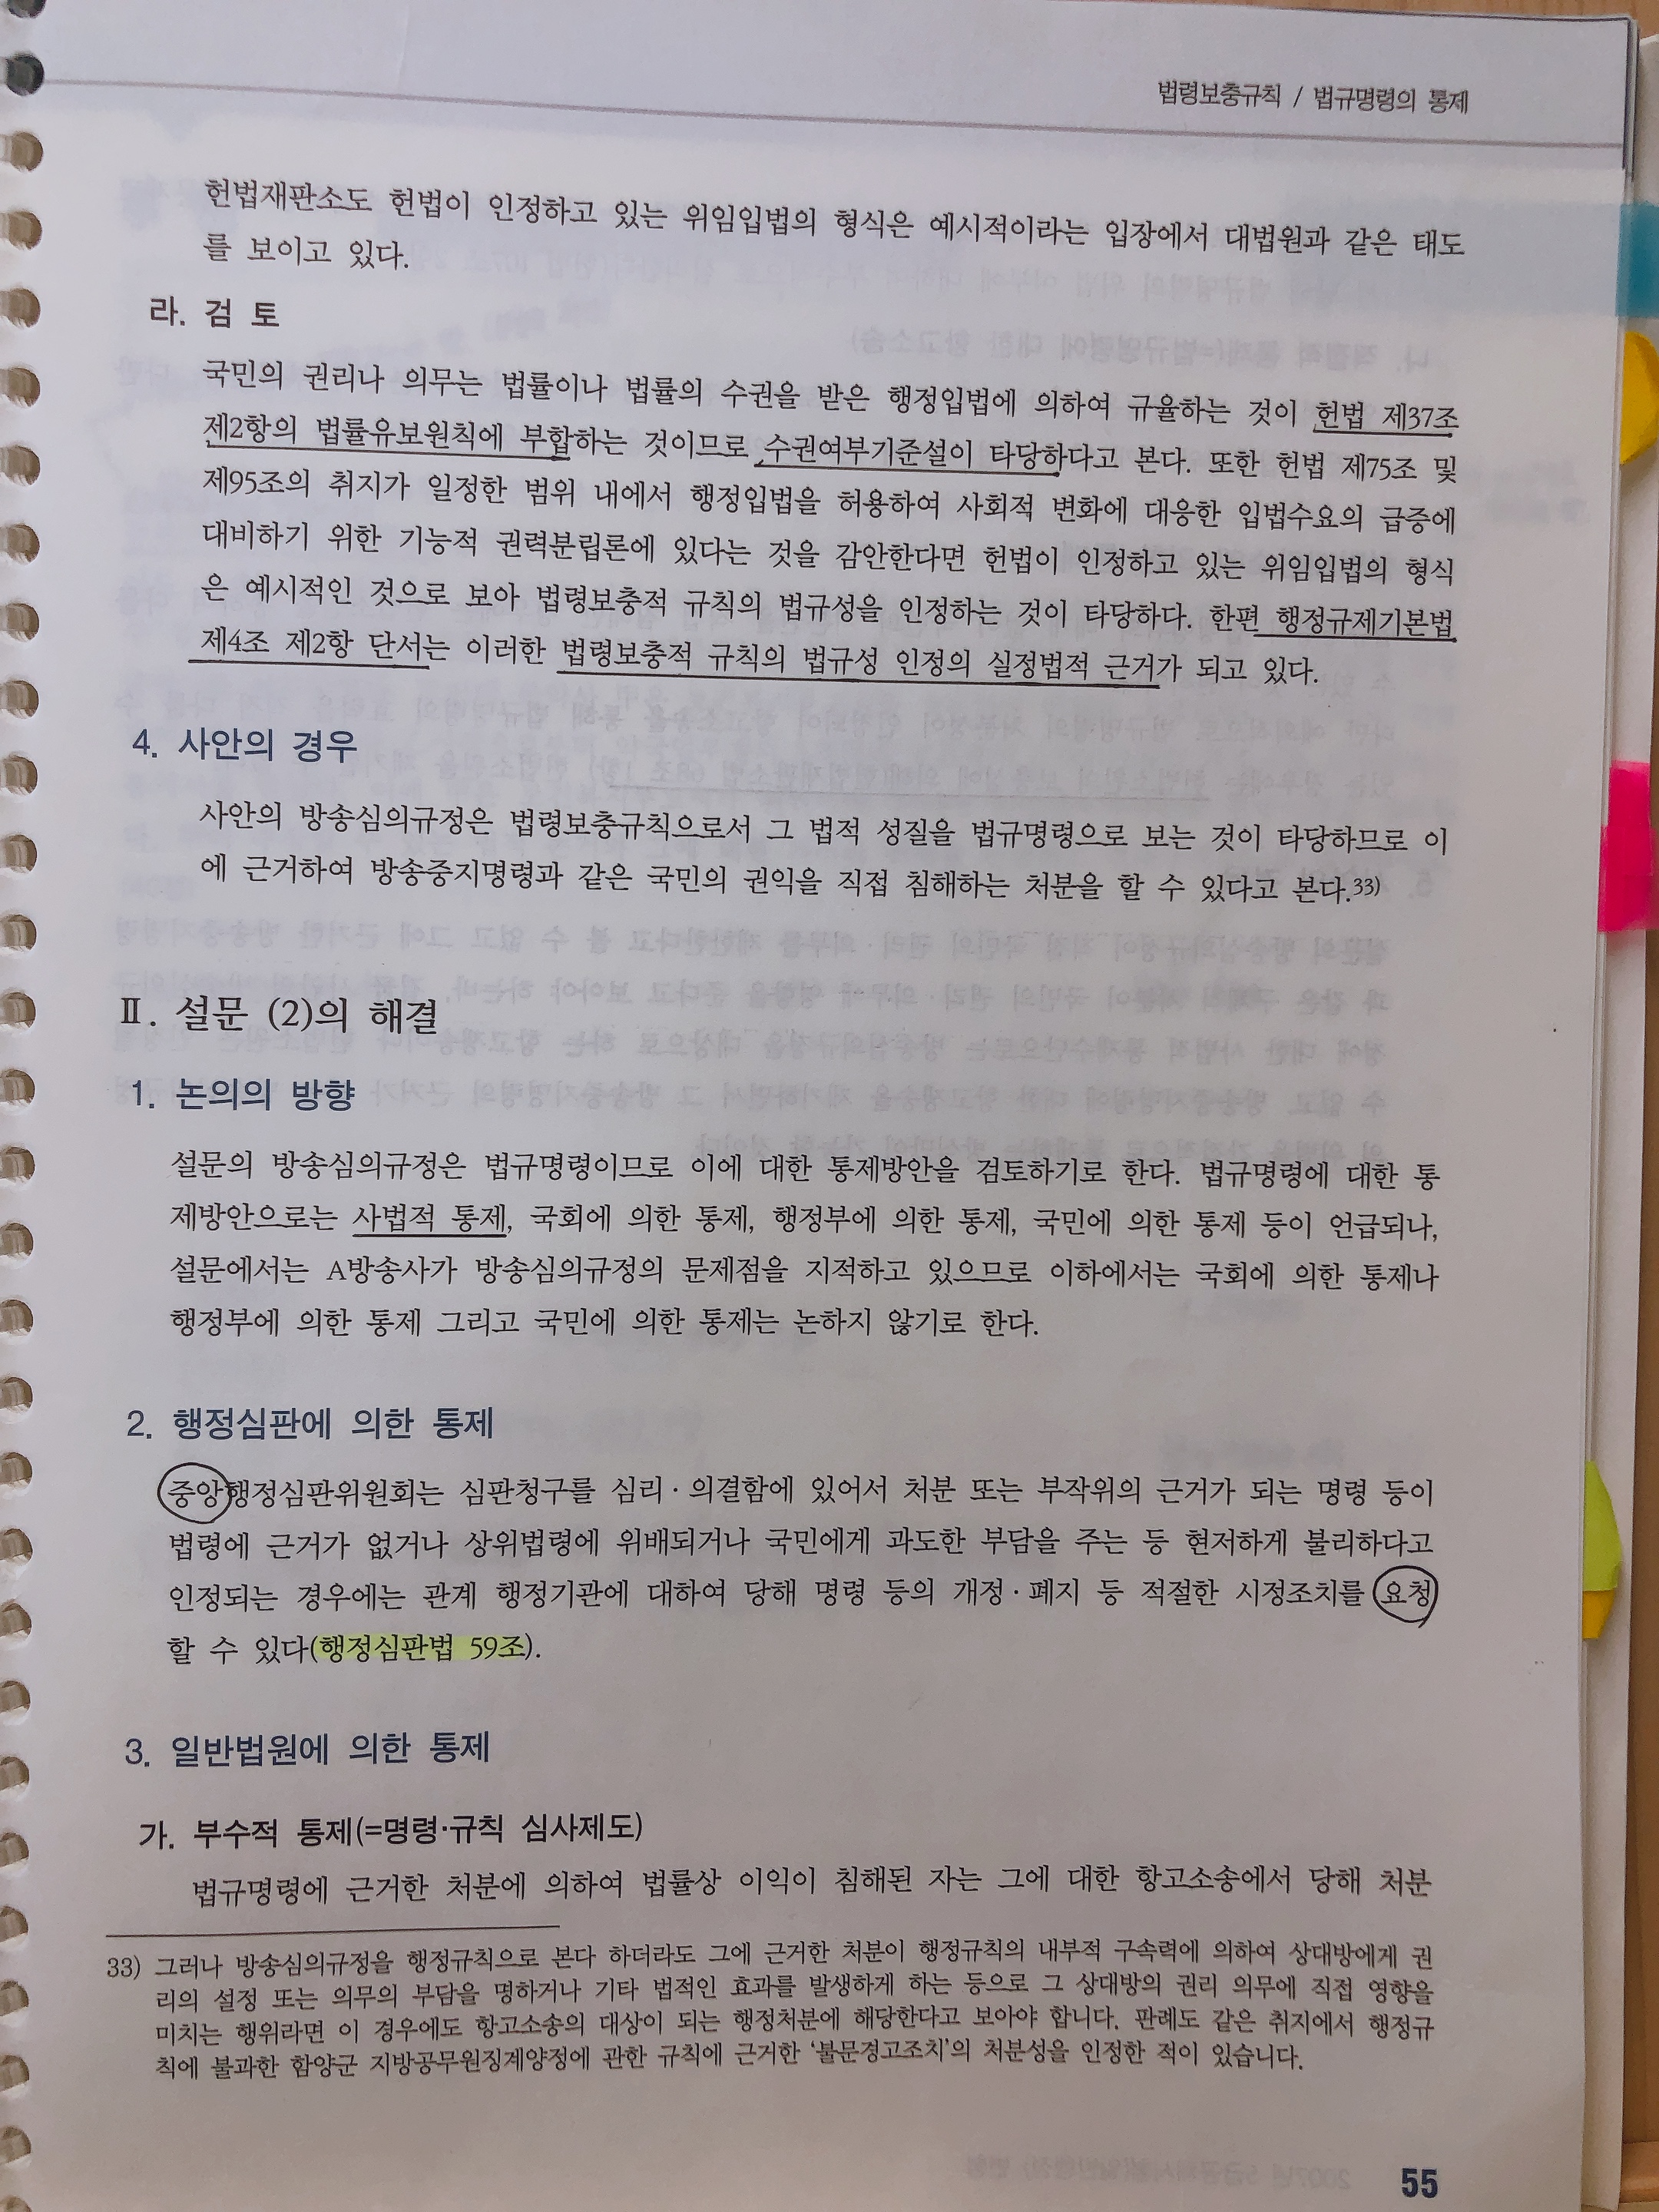 법령보충규칙 / 법규명령의 통제
헌법재판소도 헌법이 인정하고 있는 위임입법의 형식은 예시적이라는 입장에서 대법원과 같은 태도
를 보이고 있다.
라. 검 토
국민의 권리나 의무는 법률이나 법률의 수권을 받은 행정입법에 의하여 규율하는 것이 헌법 제37조
제2항의 법률유보원칙에 부합하는 것이므로 수권여부기준설이 타당하다고 본다. 또한 헌법 제75조 및
제95조의 취지가 일정한 범위 내에서 행정입법을 허용하여 사회적 변화에 대응한 입법수요의 급증에
대비하기 위한 기능적 권력분립론에 있다는 것을 감안한다면 헌법이 인정하고 있는 위임입법의 형식
은 예시적인 것으로 보아 법령보충적 규칙의 법규성을 인정하는 것이 타당하다. 한편 행정규제기본법
제4조 제2항 단서는 이러한 법령보충적 규칙의 법규성 인정의 실정법적 근거가 되고 있다.
4. 사안의 경우
사안의 방송심의규정은 법령보충규칙으로서 그 법적 성질을 법규명령으로 보는 것이 타당하므로 이
에 근거하여 방송중지명령과 같은 국민의 권익을 직접 침해하는 처분을 할 수 있다고 본다.33)
Ⅱ. 설문 (2)의 해결
1. 논의의 방향
설문의 방송심의규정은 법규명령이므로 이에 대한 통제방안을 검토하기로 한다. 법규명령에 대한 통
제방안으로는 사법적 통제, 국회에 의한 통제, 행정부에 의한 통제, 국민에 의한 통제 등이 언급되나,
설문에서는 A방송사가 방송심의규정의 문제점을 지적하고 있으므로 이하에서는 국회에 의한 통제나
행정부에 의한 통제 그리고 국민에 의한 통제는 논하지 않기로 한다.
2. 행정심판에 의한 통제
중앙행정심판위원회는 심판청구를 심리·의결함에 있어서 처분 또는 부작위의 근거가 되는 명령 등이
법령에 근거가 없거나 상위법령에 위배되거나 국민에게 과도한 부담을 주는 등 현저하게 불리하다고
인정되는 경우에는 관계 행정기관에 대하여 당해 명령 등의 개정·폐지 등 적절한 시정조치를 요청
할 수 있다(행정심판법 59조).
3. 일반법원에 의한 통제
가. 부수적 통제(=명령·규칙 심사제도)
법규명령에 근거한 처분에 의하여 법률상 이익이 침해된 자는 그에 대한 항고소송에서 당해 처분
33) 그러나 방송심의규정을 행정규칙으로 본다 하더라도 그에 근거한 처분이 행정규칙의 내부적 구속력에 의하여 상대방에게 권
리의 설정 또는 의무의 부담을 명하거나 기타 법적인 효과를 발생하게 하는 등으로 그 상대방의 권리 의무에 직접 영향을
미치는 행위라면 이 경우에도 항고소송의 대상이 되는 행정처분에 해당한다고 보아야 합니다. 판례도 같은 취지에서 행정규
칙에 불과한 함양군 지방공무원징계양정에 관한 규칙에 근거한 ‘불문경고조치’의 처분성을 인정한 적이 있습니다.
55